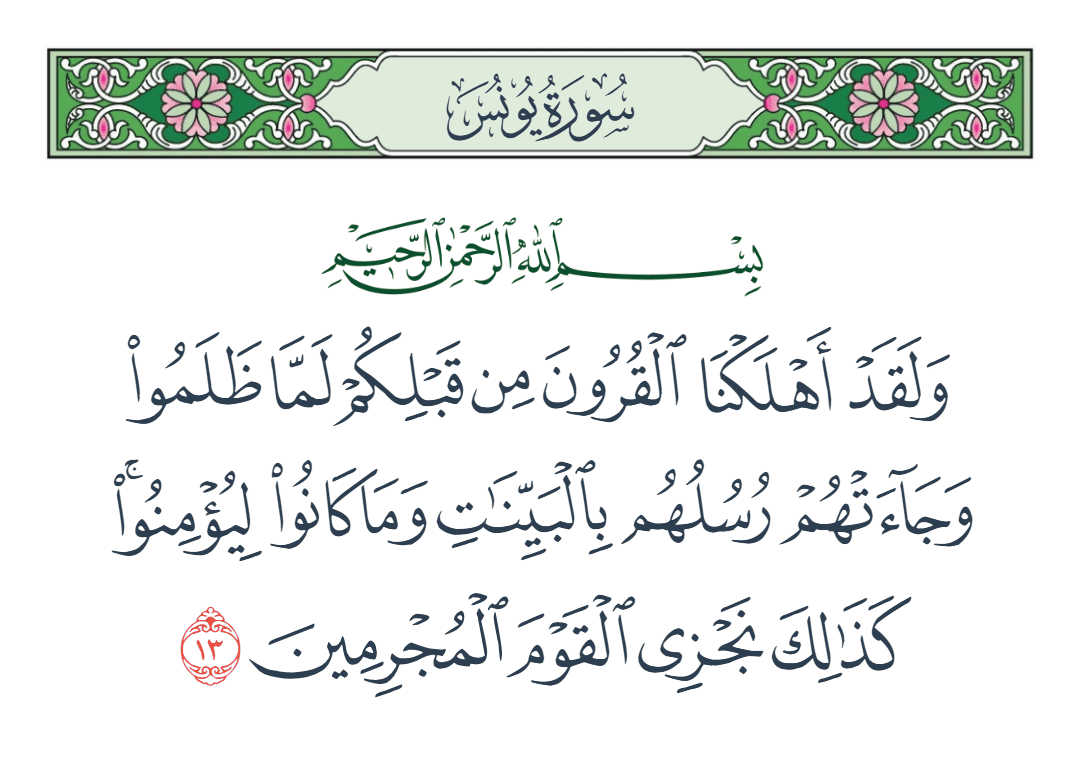 سُورَةُ يُونُسَ
بِسْمِ ٱللَّهِ ٱلرَّحْمَٰنِ ٱلرَّحِيمِ
وَلَقَدْ أَهْلَكْنَا ٱلْقُرُونَ مِن قَبْلِكُمْ لَمَّا ظَلَمُوا۟
وَجَآءَتْهُمْ رُسُلُهُم بِٱلْبَيِّنَٰتِ وَمَا كَانُوا۟ لِيُؤْمِنُوا۟ ۚ
كَذَٰلِكَ نَجْزِى ٱلْقَوْمَ ٱلْمُجْرِمِينَ ١٣